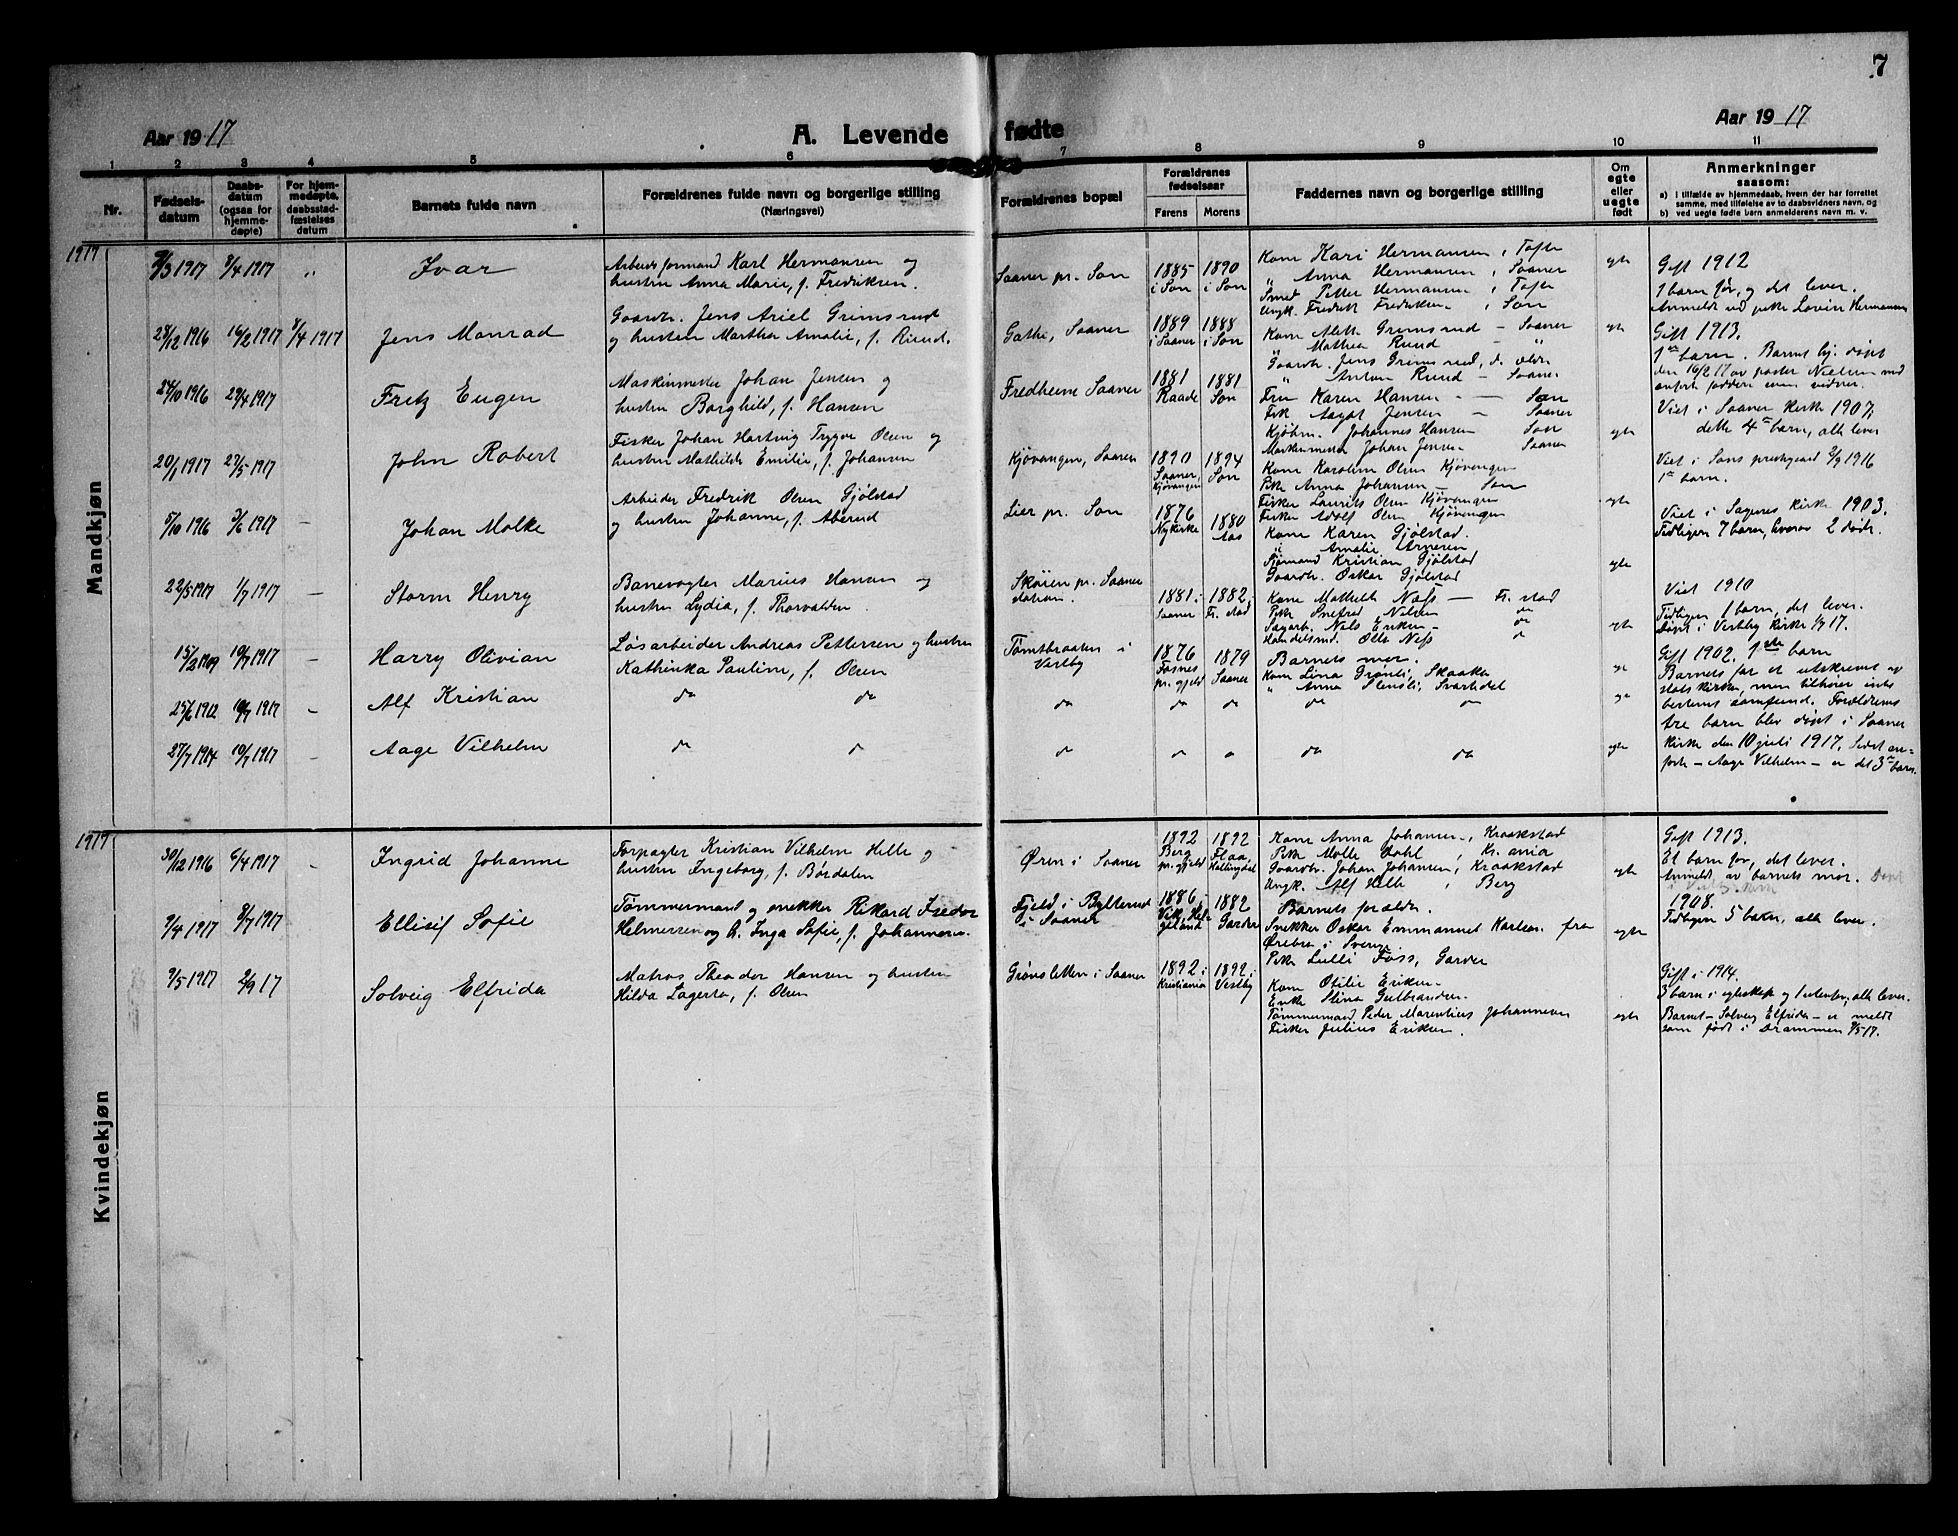 7
Aar 1917
A. Levende fødte
Aar 1917
1 2 3 4 5 6 7 8 9 10 11
Nr.
Fødselsdatum
Daabsdatum (ogsaa for hjemmedøpte)
For hjemmedøpte, daabsstadfæstelses datum
Barnets fulde navn
Forældrenes fulde navn og borgerlige stilling
(Næringsvei)
Forældrenes bopæl
Forældrenes fødselsaar
Farens
Morens
Faddernes navn og borgerlige stilling
Om egte eller uegte født
Anmerkninger
saasom:
a) i tilfælde av hjemmedaab, hvem der har forrettet samme, med tilføielse av to daabsvidners navn, og
b) ved uegte fødte barn anmelderens navn m. v.
Mandkjøn
1917
9/3 1917 9/4 1917 "
Ivar
Arbeidsformand Karl Hermansen og
hustru Anna Marie, f. Fredriksen.
Saaner pr. Son
1885 i Son
1890 i Son
Kone Kari Hermansen, Tofte
" Anna Hermansen, Saaner
Smed Petter Hermansen, Tofte
Ungk. Fredrik Fredriksen, Son
egte
Gift 1912
1 barn før, og det lever.
28/12 1916 16/2 1917 9/4 1917
Jens Monrad
Gaardbr. Jens Ariel Grimsrud
og hustru Martha Amalie, f. Ruud.
Saaner
1889 i Saaner
1888 i Son
Grimsrud - Saaner
" Mathea Ruud - "
Gaardbr. Jens Grimsrud, d. ældr.
" Anton Ruud - Saaner
egte
Gift 1913.
1ste barn. Barnet hj. døpt
den 16/2 17 av pastor Nielsen med
24/10 1916 29/4 1917
Fritz Eugen
Maskinmester Johan Jensen og
hustru Borghild, f. Hansen
Fredheim Saaner
1881 Raade
1881 Son
Fru Karen Hansen - Son
Frk Aagot Jensen - Saaner
Kjøbm. Johannes Hansen Son
Johan Jensen Saaner
egte
Viet i Saaner kirke 1907,
dette 4de barn, alle lever
20/1 1917 27/5 1917
John Robert
Fisker Johan Hartvig Trygve Olsen og
hustru Mathilde Emilie, f. Johansen
Kjøvangen, Saaner
1890 Saaner, Kjøvangen
1894 Son
Kone Karoline Olsen Kjøvangen
Pike Anna Johansen - Son
Fisker Laurits Olsen Kjøvangen
Fisker Adolf Olsen Kjøvangen
egte
Viet i Sons 1916
1ste barn.
5/10 1916 3/6 1917 -
Johan Molke
Arbeider Fredrik Olsen Gjølstad
og hustru Johanne, f. Aberud
Lier pr. Son
1876 Nykirke
1880 Aas
Kone Karen Gjølstad.
" Amalie
Sjømand Kristian Gjølstad
Gaardbr. Oskar Gjølstad
egte
Viet i Sagenes kirke 1903.
Tidligere 7 barn, hvorav 2 døde.
22/5 1917 1/7 1917 -
Storm Henry
Banevogter Marius Hansen og
hustru Lydia, f. Thorvaldsen.
Skøien pr. Saaner
station.
1881 Saaner
1882 Fr. stad
Kone Mathilde Næss - Fr. stad
Pike Snefred Nilsen do
Sagarb. Nils Eriksen - do
Handelsmd. Olle Næss do
egte
Viet 1910
Tidligere 1 barn, det lever.
Døpt i Vestby kirke 1/7 17.
15/3 1909 10/7 1917 -
Harry Olivian
Løsarbeider Andreas Pettersen og hustru
Kathinka Pauline, f. Olsen
Tomtbraaten i
Vestby
1876 Fosnes pr. gjeld
1879 Saaner
Barnets mor.
Kone Lina Grønli, Skaaka
" Anna Stensli, Svartedal
egte
Gift 1902. 1ste barn
Barnets far er utskrevet av
statskirken, men tilhører intet
bestemt samfund. Forældrenes
tre barn blev døpt i Saaner
kirke den 10 juli 1917. Sidst an-
førte - Aage Vilhelm - er det 3de barn.
25/6 1912 10/7 1917 -
Alf Kristian
do do do do do do do
27/7 1914 10/7 1917 -
Aage Vilhelm
do do do do do do egte
Kvindekjøn
1917
30/12 1916 6/4 1917 -
Ingrid Johanne
Forpagter Kristian Vilhelm Helle og
hustru Ingeborg, f. Børdalen
Øren i Saaner
1892 Berg pr. gjeld
1892 Flaa, Hallingdal
Kone Anna Johansen, Kraakstad
Pike Molle Dahl, Kr. ania
Gaardbr. Johan Johansen, Kraakstad
Ungk. Alf Helle, Berg
egte
Gift 1913.
Et barn før, det lever.
Anmeldt av barnets mor. Døpt
i Vestby kirke
9/4 1917 8/7 1917
Ellisif Sofie
Tømmermand og snekker Rikard Fredor
Helmersen og h. Inga Sofie, f. Johannesen
Fjeld i Bylterud
i Saaner
1886 i Vik, Helgeland
1882 Garder
Barnets forældre.
Snekker Oskar Emmanuel Karlsson fra
Ørebro i Sverige
Pike Lulli Foss, Garder
egte
1908.
Tidligere 5 barn, alle lever.
9/5 1917 2/9 17
Solveig Elfrida
Matros Theodor Hansen og hustru
Hilda Lagerta, f. Olsen
Grønsletten i Saaner
1892 i Kristiania
1892 i Vestby
Kone Otilie Eriksen
Enke Stina Gulbrandsen.
Tømmermand Peder Marentius Johannesen
Fisker Julius Eriksen.
egte
Gift i 1914.
3 barn i egteskap og 1 utenfor, alle lever.
Barnet - Solveig Elfrida - er meldt
som født i Drammen 9/5 17.